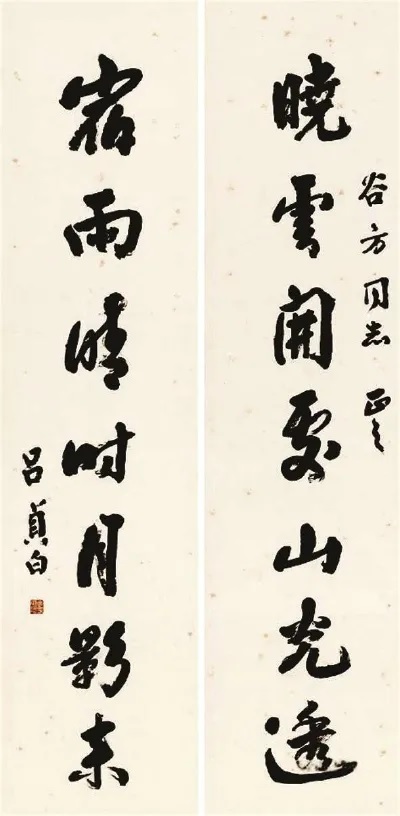 谷方同志正之
曉雲開處山光透
宿雨晴时月影来
呂貞白